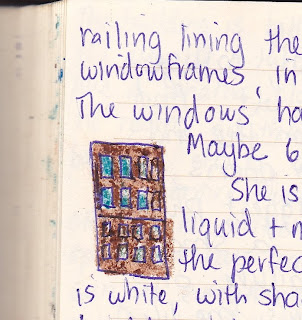 railing lining the
windowframes, in
The windows ha
Maybe 6
She is
liquid + m
the perfec
is white, with sha